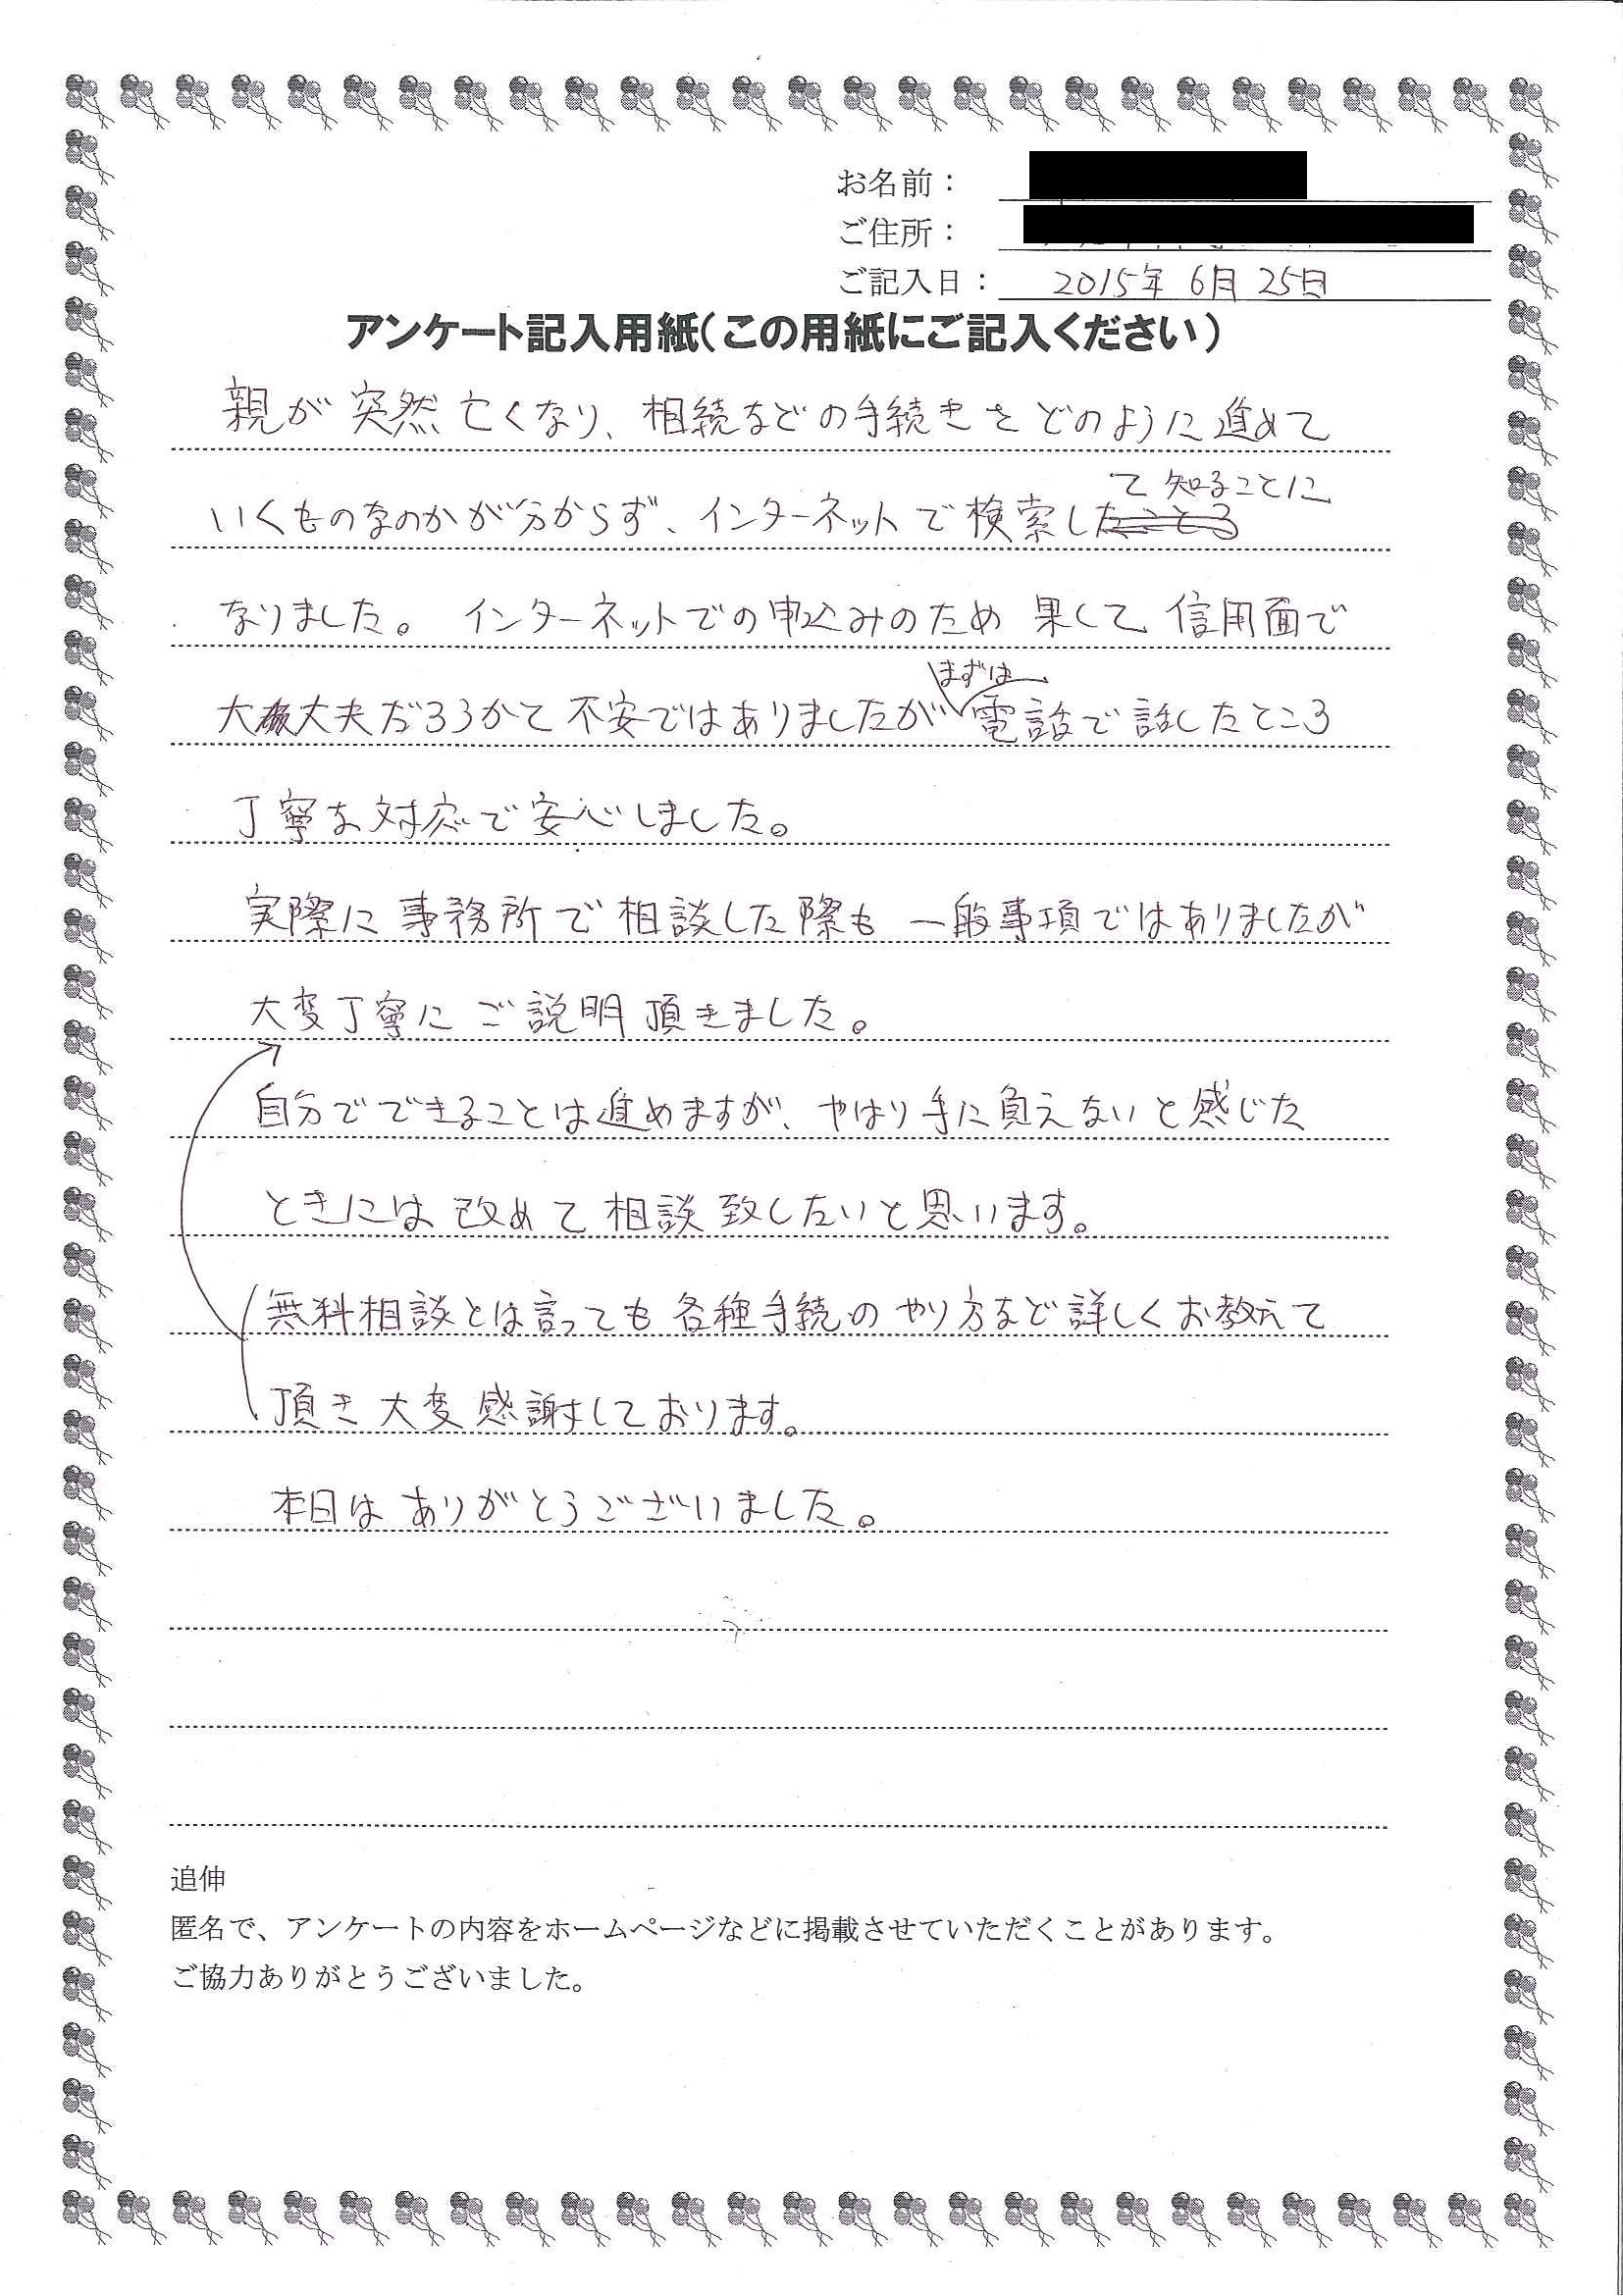 お名前：
ご住所：
ご記入日： 2015年 6月 25日
アンケート記入用紙（この用紙にご記入ください）
親が突然亡くなり、相続などの手続きをどのように進めて
て知ることに
いくものなのかが分からず、インターネットで検索したところ
なりました。インターネットでの申込みのため果して信用面で
まずは
大丈夫だろうかて不安ではありましたが電話で話したところ
丁寧な対応で安心しました。
実際に事務所で相談した際も一般事項ではありましたが
大変丁寧にご説明頂きました。
自分でできることは進めますが、やはり手に負えないと感じた
ときには改めて相談致したいと思います。
無料相談とは言っても各種手続のやり方など詳しくお教えて
頂き大変感謝しております。
本日はありがとうございました。
追伸
匿名で、アンケートの内容をホームページなどに掲載させていただくことがあります。
ご協力ありがとうございました。